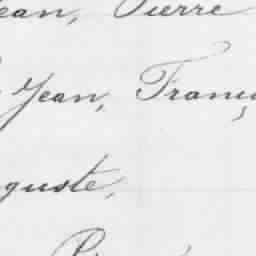 Jean, Pierre
Jean, Franç
guste,